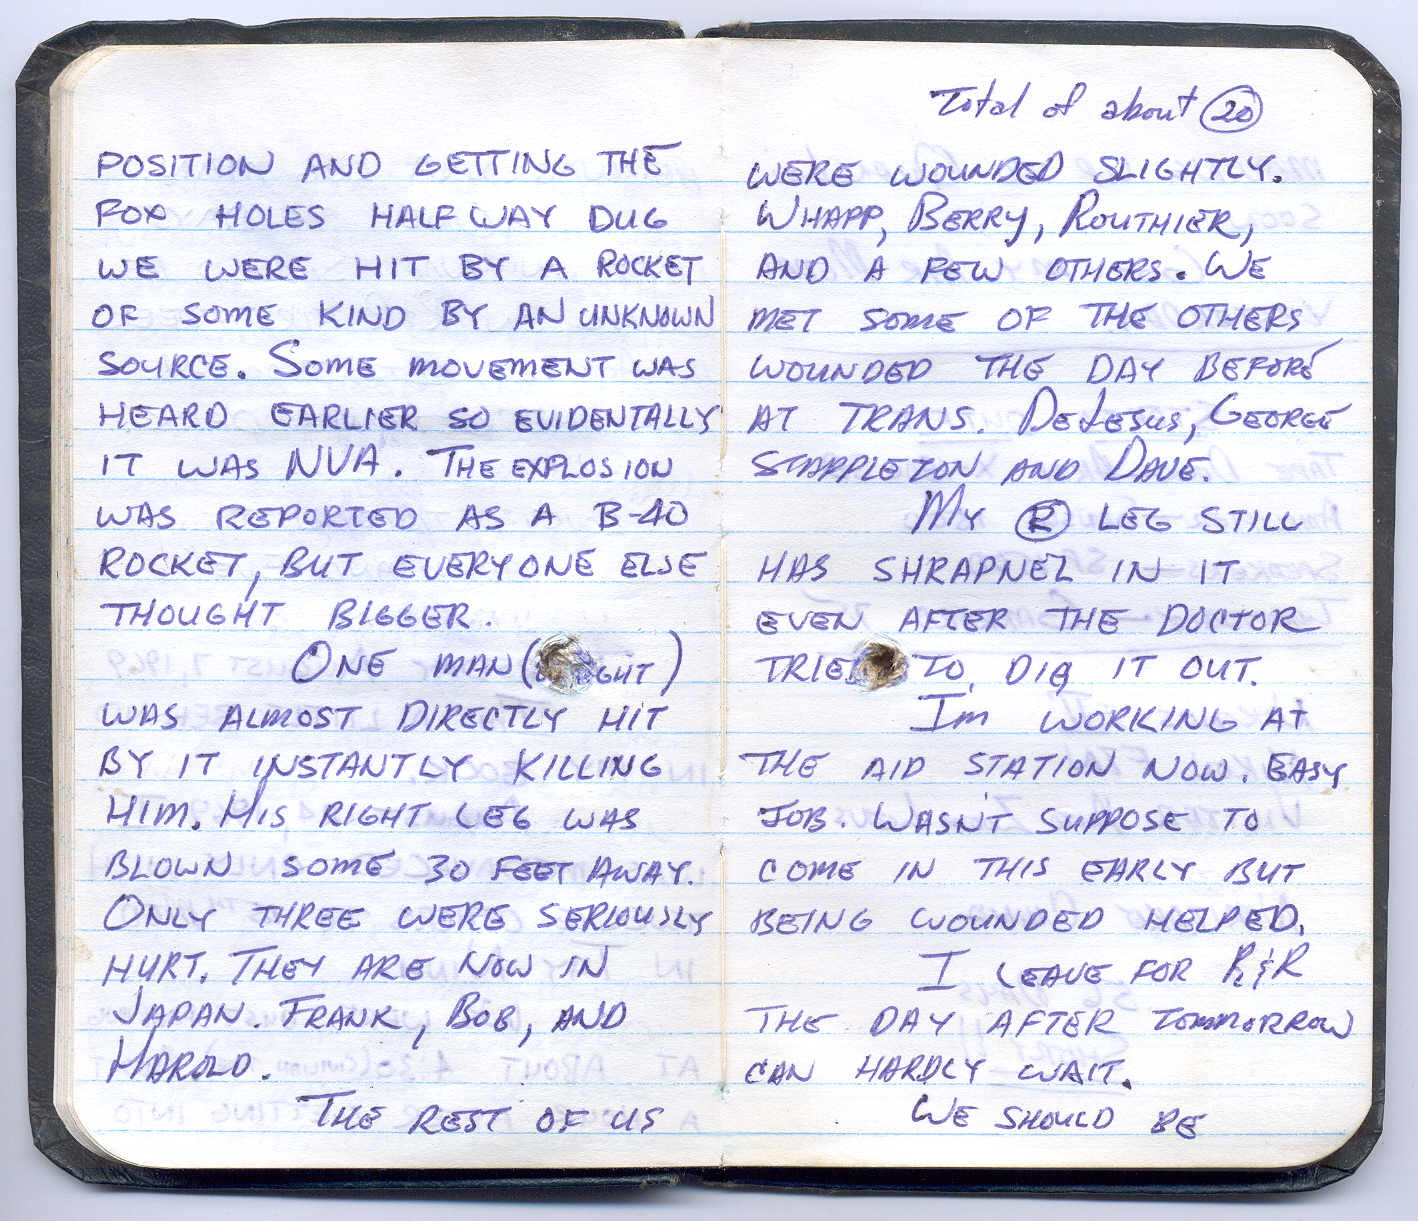 POSITION AND GETTING THE
FOX HOLES HALFWAY DUG
WE WERE HIT BY A ROCKET
OF SOME KIND BY AN UNKNOWN
SOURCE. SOME MOVEMENT WAS
HEARD EARLIER SO EVIDENTALLY
IT WAS NVA. THE EXPLOSION
WAS REPORTED AS A B-40
ROCKET, BUT EVERYONE ELSE
THOUGHT BIGGER.
ONE MAN (      GHT)
WAS ALMOST DIRECTLY HIT
BY IT INSTANTLY KILLING
HIM. HIS RIGHT LEG WAS
BLOWN SOME 30 FEET AWAY.
ONLY THREE WERE SERIOUSLY
HURT. THEY ARE NOW IN
JAPAN. FRANK, BOB, AND
HAROLD.
THE REST OF US
Total of about 20
WERE WOUNDED SLIGHTLY.
WHAPP, BERRY, ROUTHIER,
AND A FEW OTHERS. WE
MET SOME OF THE OTHERS
WOUNDED THE DAY BEFORE
AT TRANS. DeJesus, GEORGE
STAPPLETON AND DAVE.
MY R LEG STILL
HAS SHRAPNEL IN IT
EVEN AFTER THE DOCTOR
TRIED TO DIG IT OUT.
Im WORKING AT
THE AID STATION NOW. EASY
JOB. WASN'T SUPPOSE TO
COME IN THIS EARLY BUT
BEING WOUNDED HELPED.
I LEAVE FOR R&R
THE DAY AFTER TOMMORROW
CAN HARDLY WAIT.
WE SHOULD BE